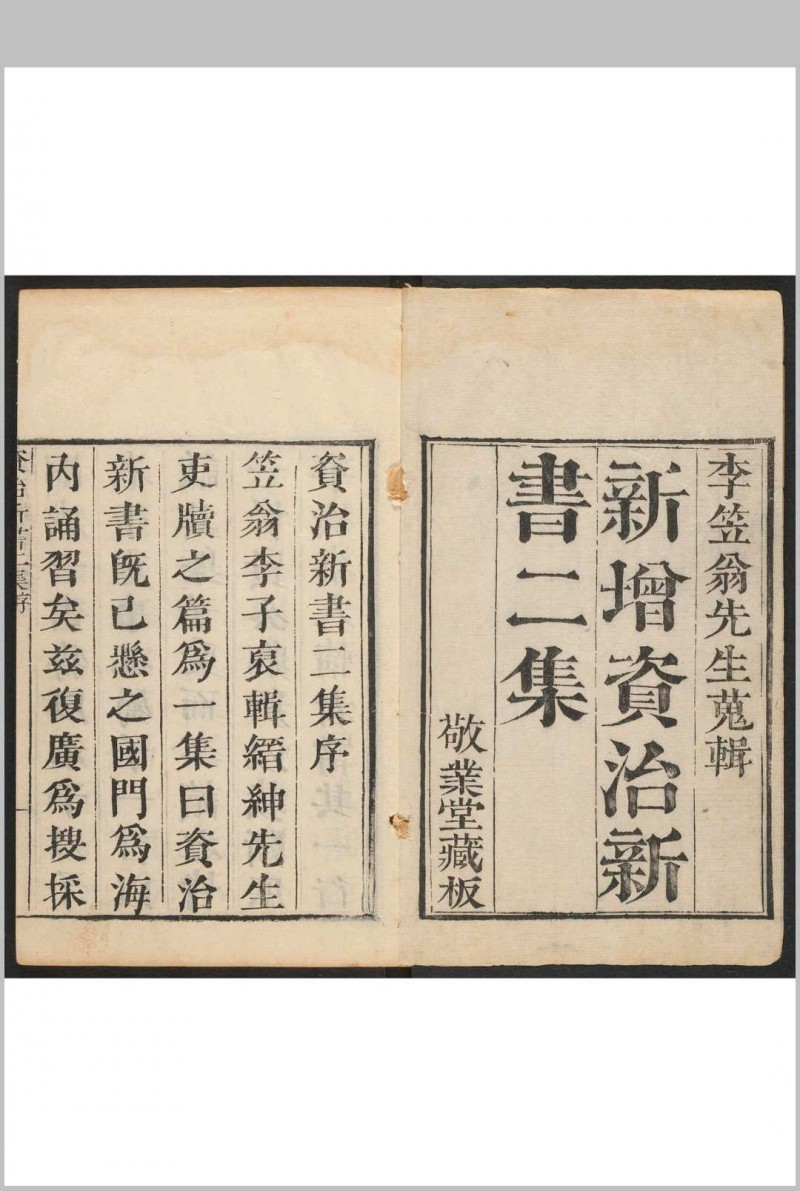 李笠翁先生蒐輯
新增資治新
書二集
敬業堂藏板
資治新書二集序
笠翁李子裒輯縉紳先生
吏牘之篇爲一集曰資治
新書旣已懸之國門爲海
内誦習矣玆復廣爲搜採
資治新書二集序
一